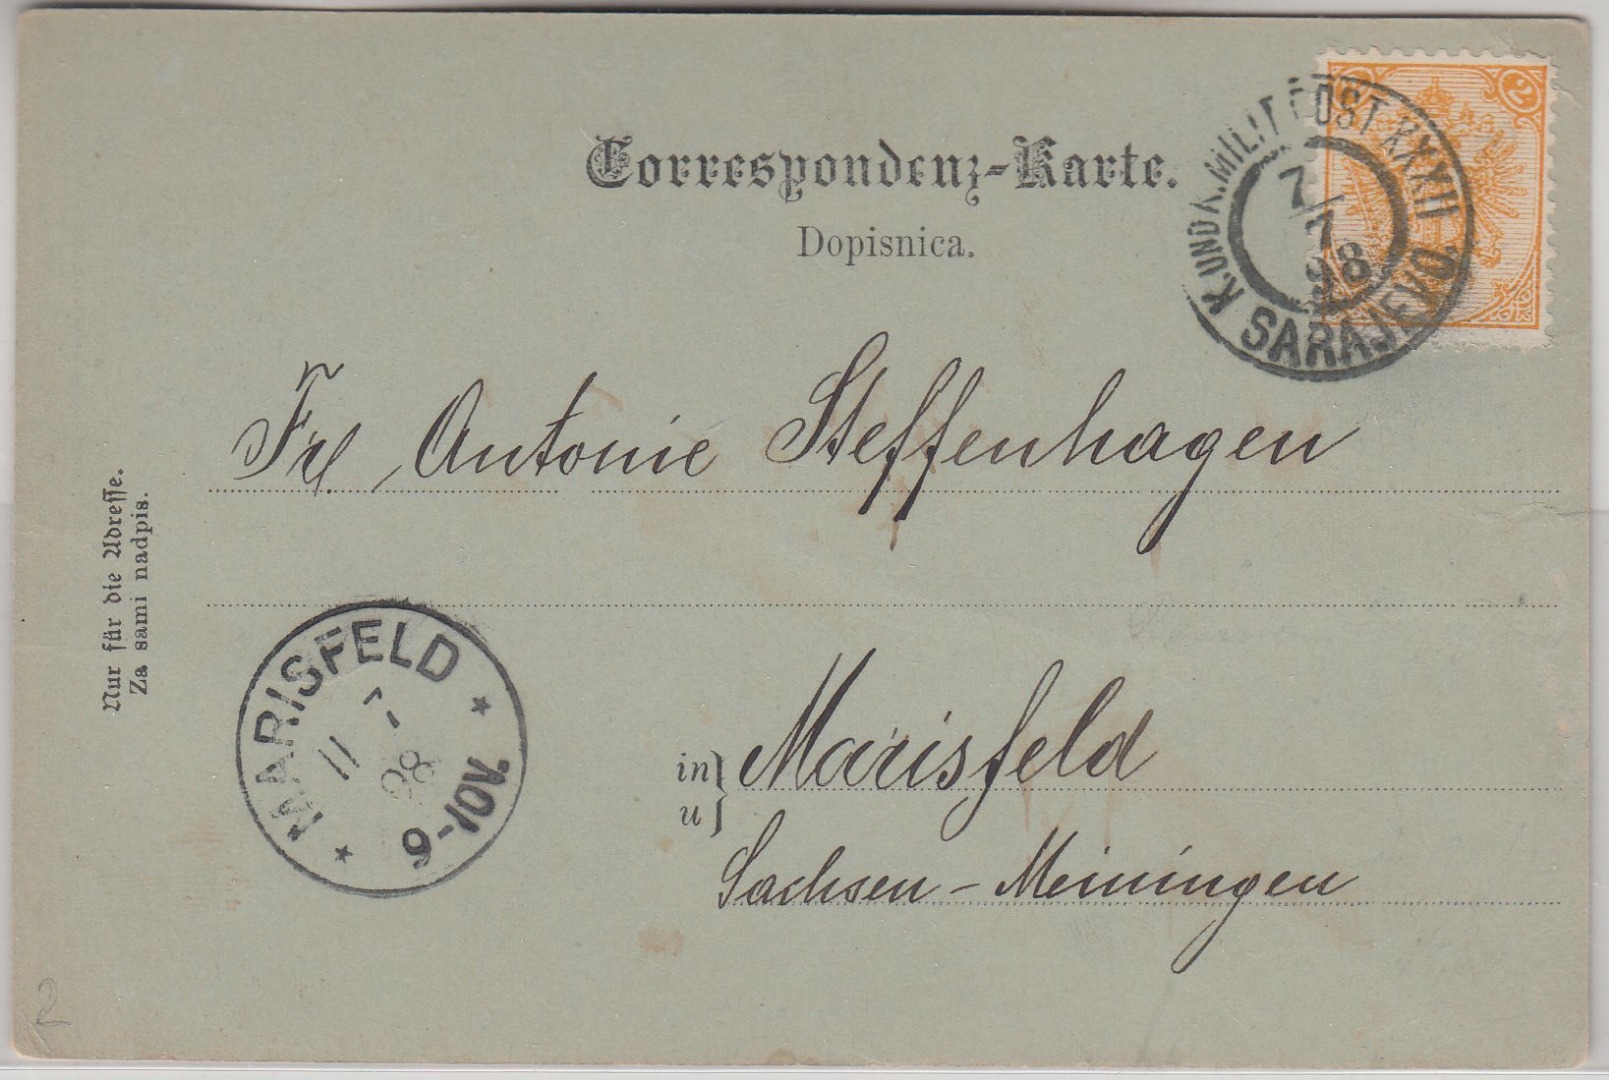 Correspondenz-Karte.
Dopisnica.
2
K. UND K. MILIT. POST XXXII
7/7
98
SARAJEVO
Frl. Antonie Steffenhagen
Nur für die Adresse.
Za sami nadpis.
MARISFELD
11 7
98
6-10V.
in } Marisfeld
u }
Sachsen-Meiningen
2